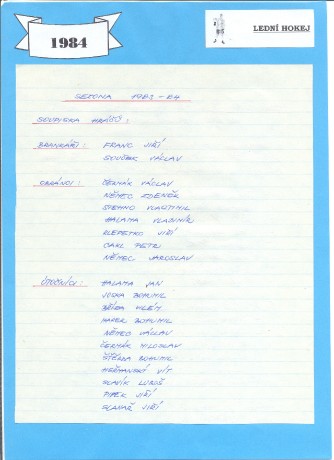 1984
LEDNÍ HOKEJ
SEZONA 1983-84
SOUPISKA HRÁČŮ:
BRANKÁŘI: FRANC JIŘÍ
SOUČEK VÁCLAV
OBRÁNCI: ČERMÁK VÁCLAV
NĚMEC ZDENĚK
STEHNO VLASTIMIL
HALAMA VLADIMÍR
KLEPETKO JIŘÍ
CARL PETR
NĚMEC JAROSLAV
ÚTOČNÍCI: HALAMA JAN
JOSKA BOHUMIL
BŘÍZA
HAJEK BOHUMIL
NĚMEC VÁCLAV
ČERMÁK MILOSLAV
ŠTĚRBA BOHUMIL
HEŘMANSKÝ VÍT
SLAVÍK LUBOŠ
PIPEK JIŘÍ
JIŘÍ